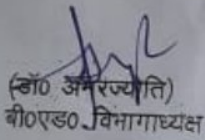 (डॉ0 अमरज्योति)
बी0एड0 विभागाध्यक्ष